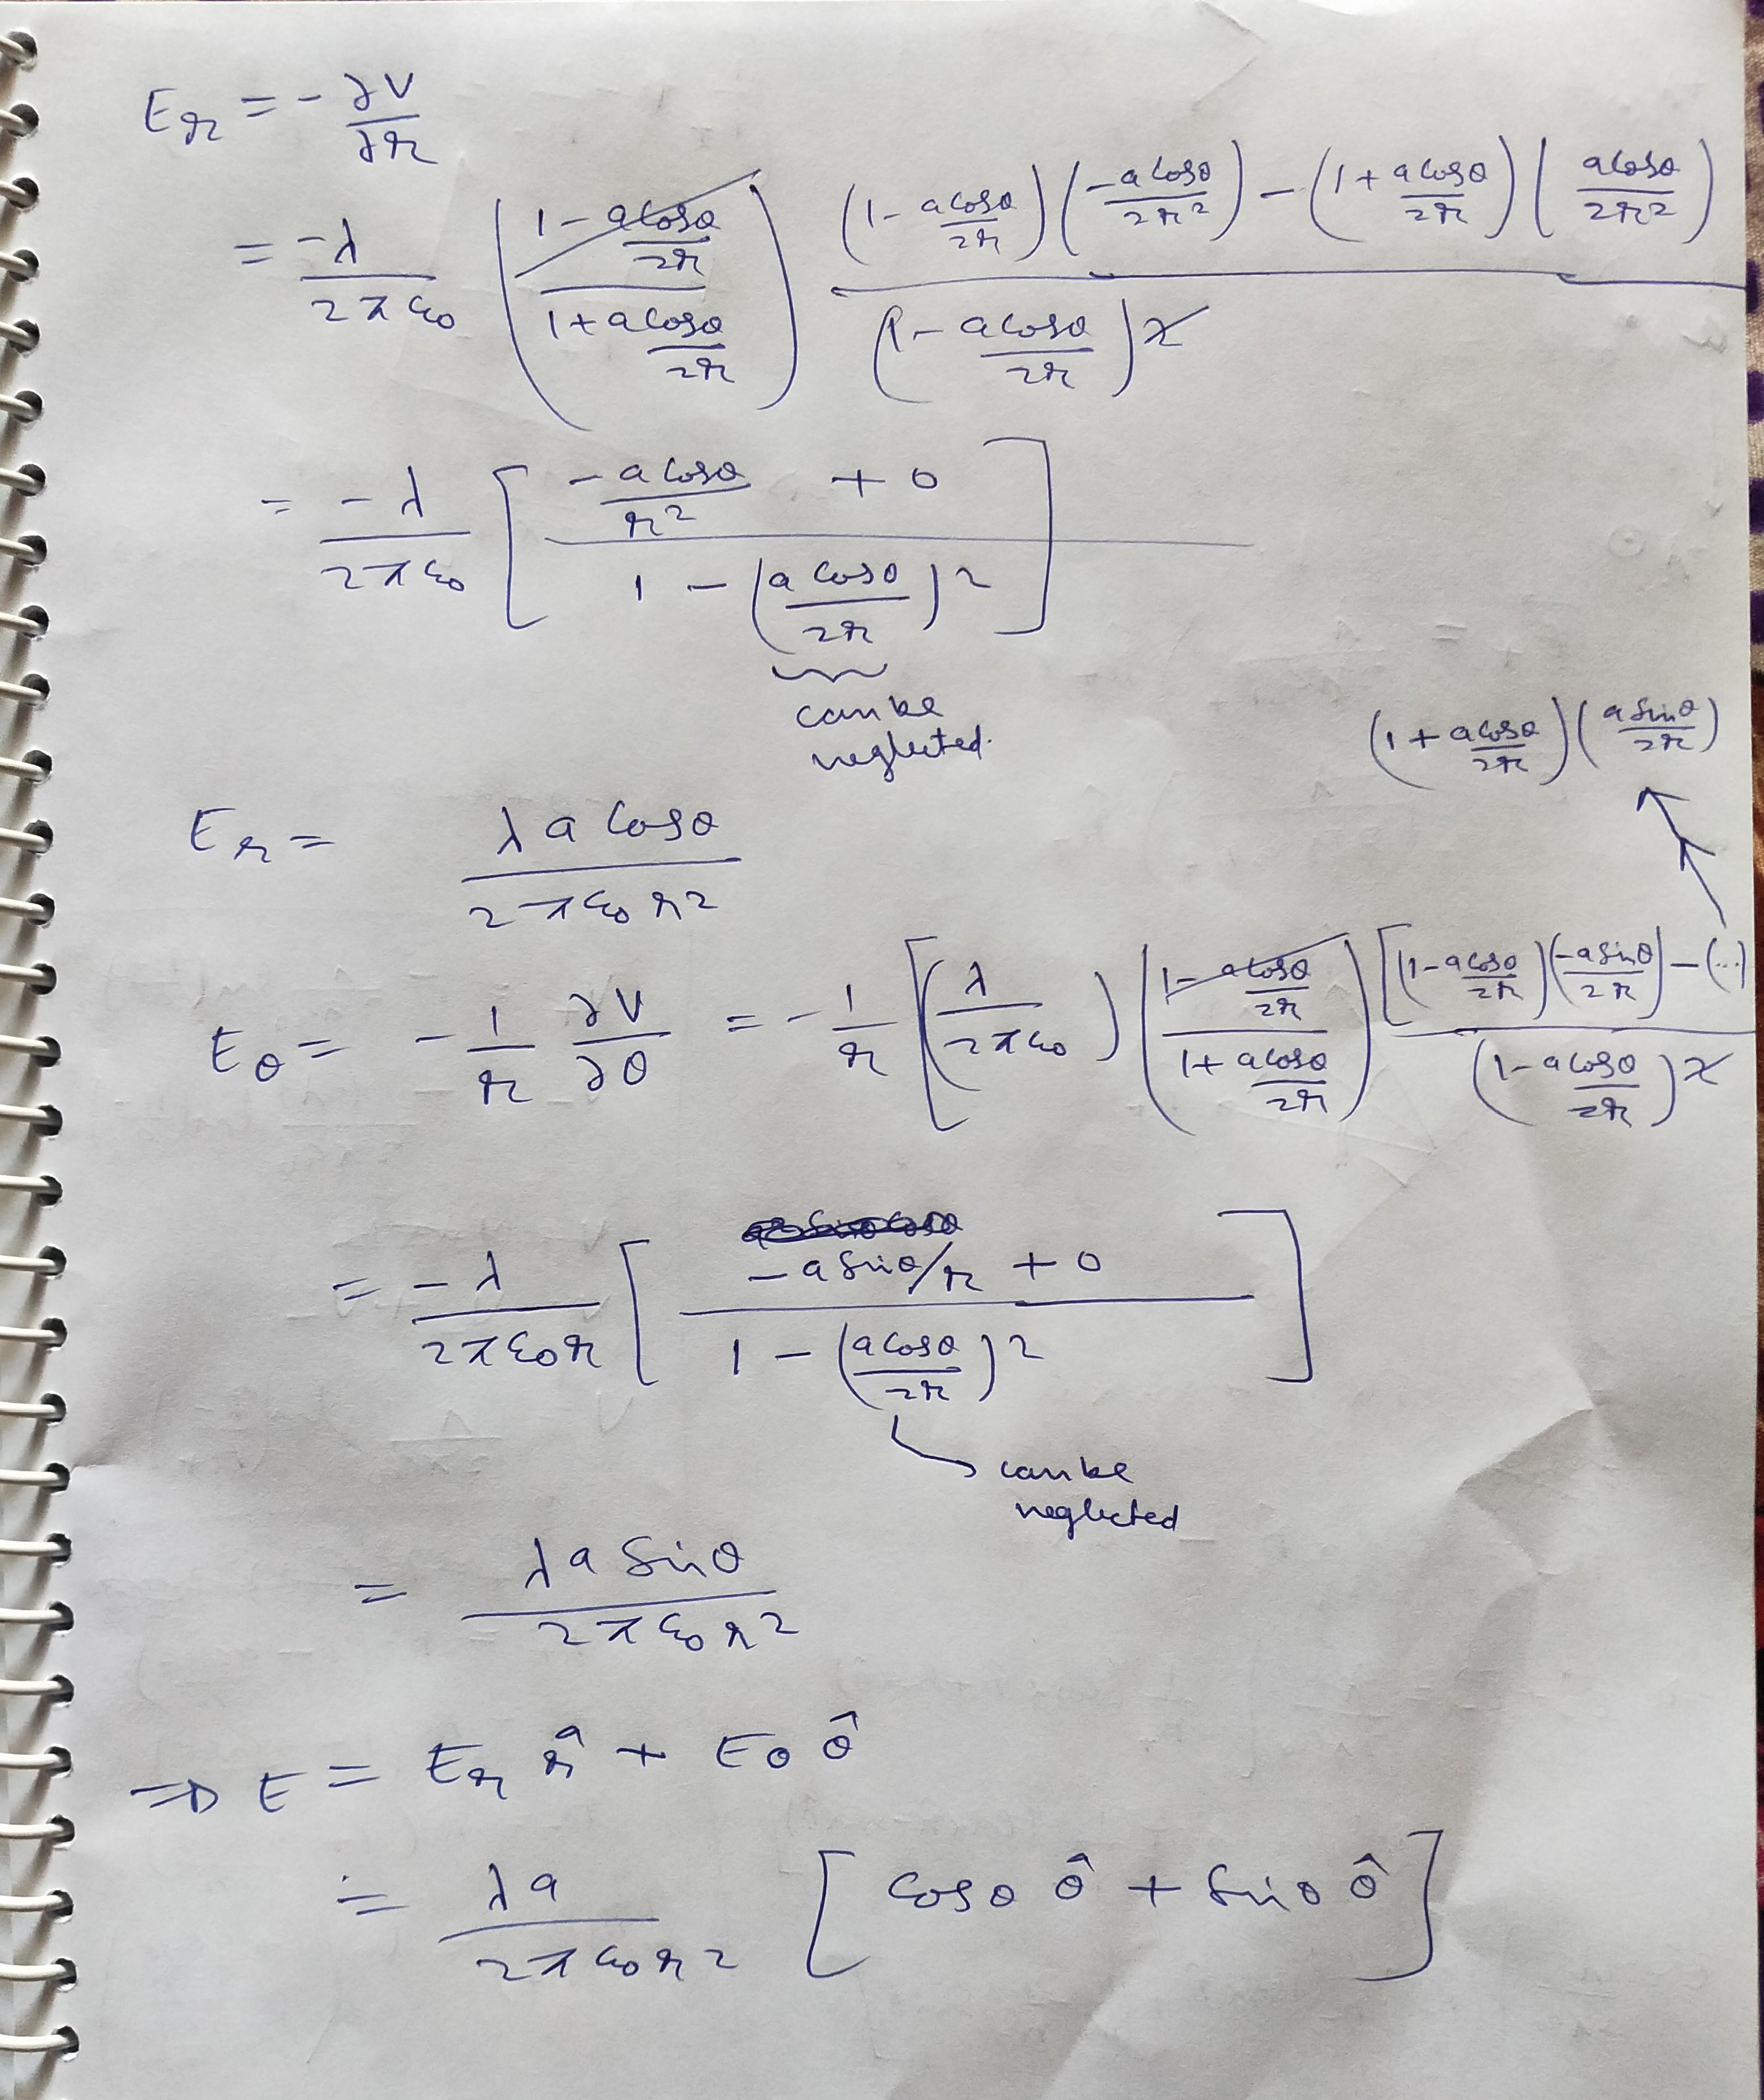 E_r = - ∂V/∂r
= -λ/2πε₀ ((1 - acosθ/2r)/(1 + acosθ/2r)) ((1 - acosθ/2r)(-acosθ/2r²) - (1 + acosθ/2r)(acosθ/2r²))/(1 - acosθ/2r)²
= -λ/2πε₀ [(-acosθ/r² + 0)/(1 - (acosθ/2r)²)]
can be
neglected.
(1 + acosθ/2r)(a sinθ/2r)
E_r = λ a cosθ/2πε₀r²
E_θ = - 1/r ∂V/∂θ = - 1/r [(λ/2πε₀) ((1 - acosθ/2r)/(1 + acosθ/2r)) [(1 - acosθ/2r)(-a sinθ/2r) - (...)]/(1 - acosθ/2r)²
= -λ/2πε₀r [(-a sinθ/r + 0)/(1 - (acosθ/2r)²)]
can be
neglected
= λ a sinθ/2πε₀r²
⇒ E = E_r r̂ + E_θ θ̂
= λa/2πε₀r² [cosθ θ̂ + sinθ θ̂]